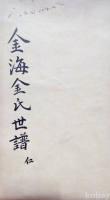 金海金氏世譜 仁